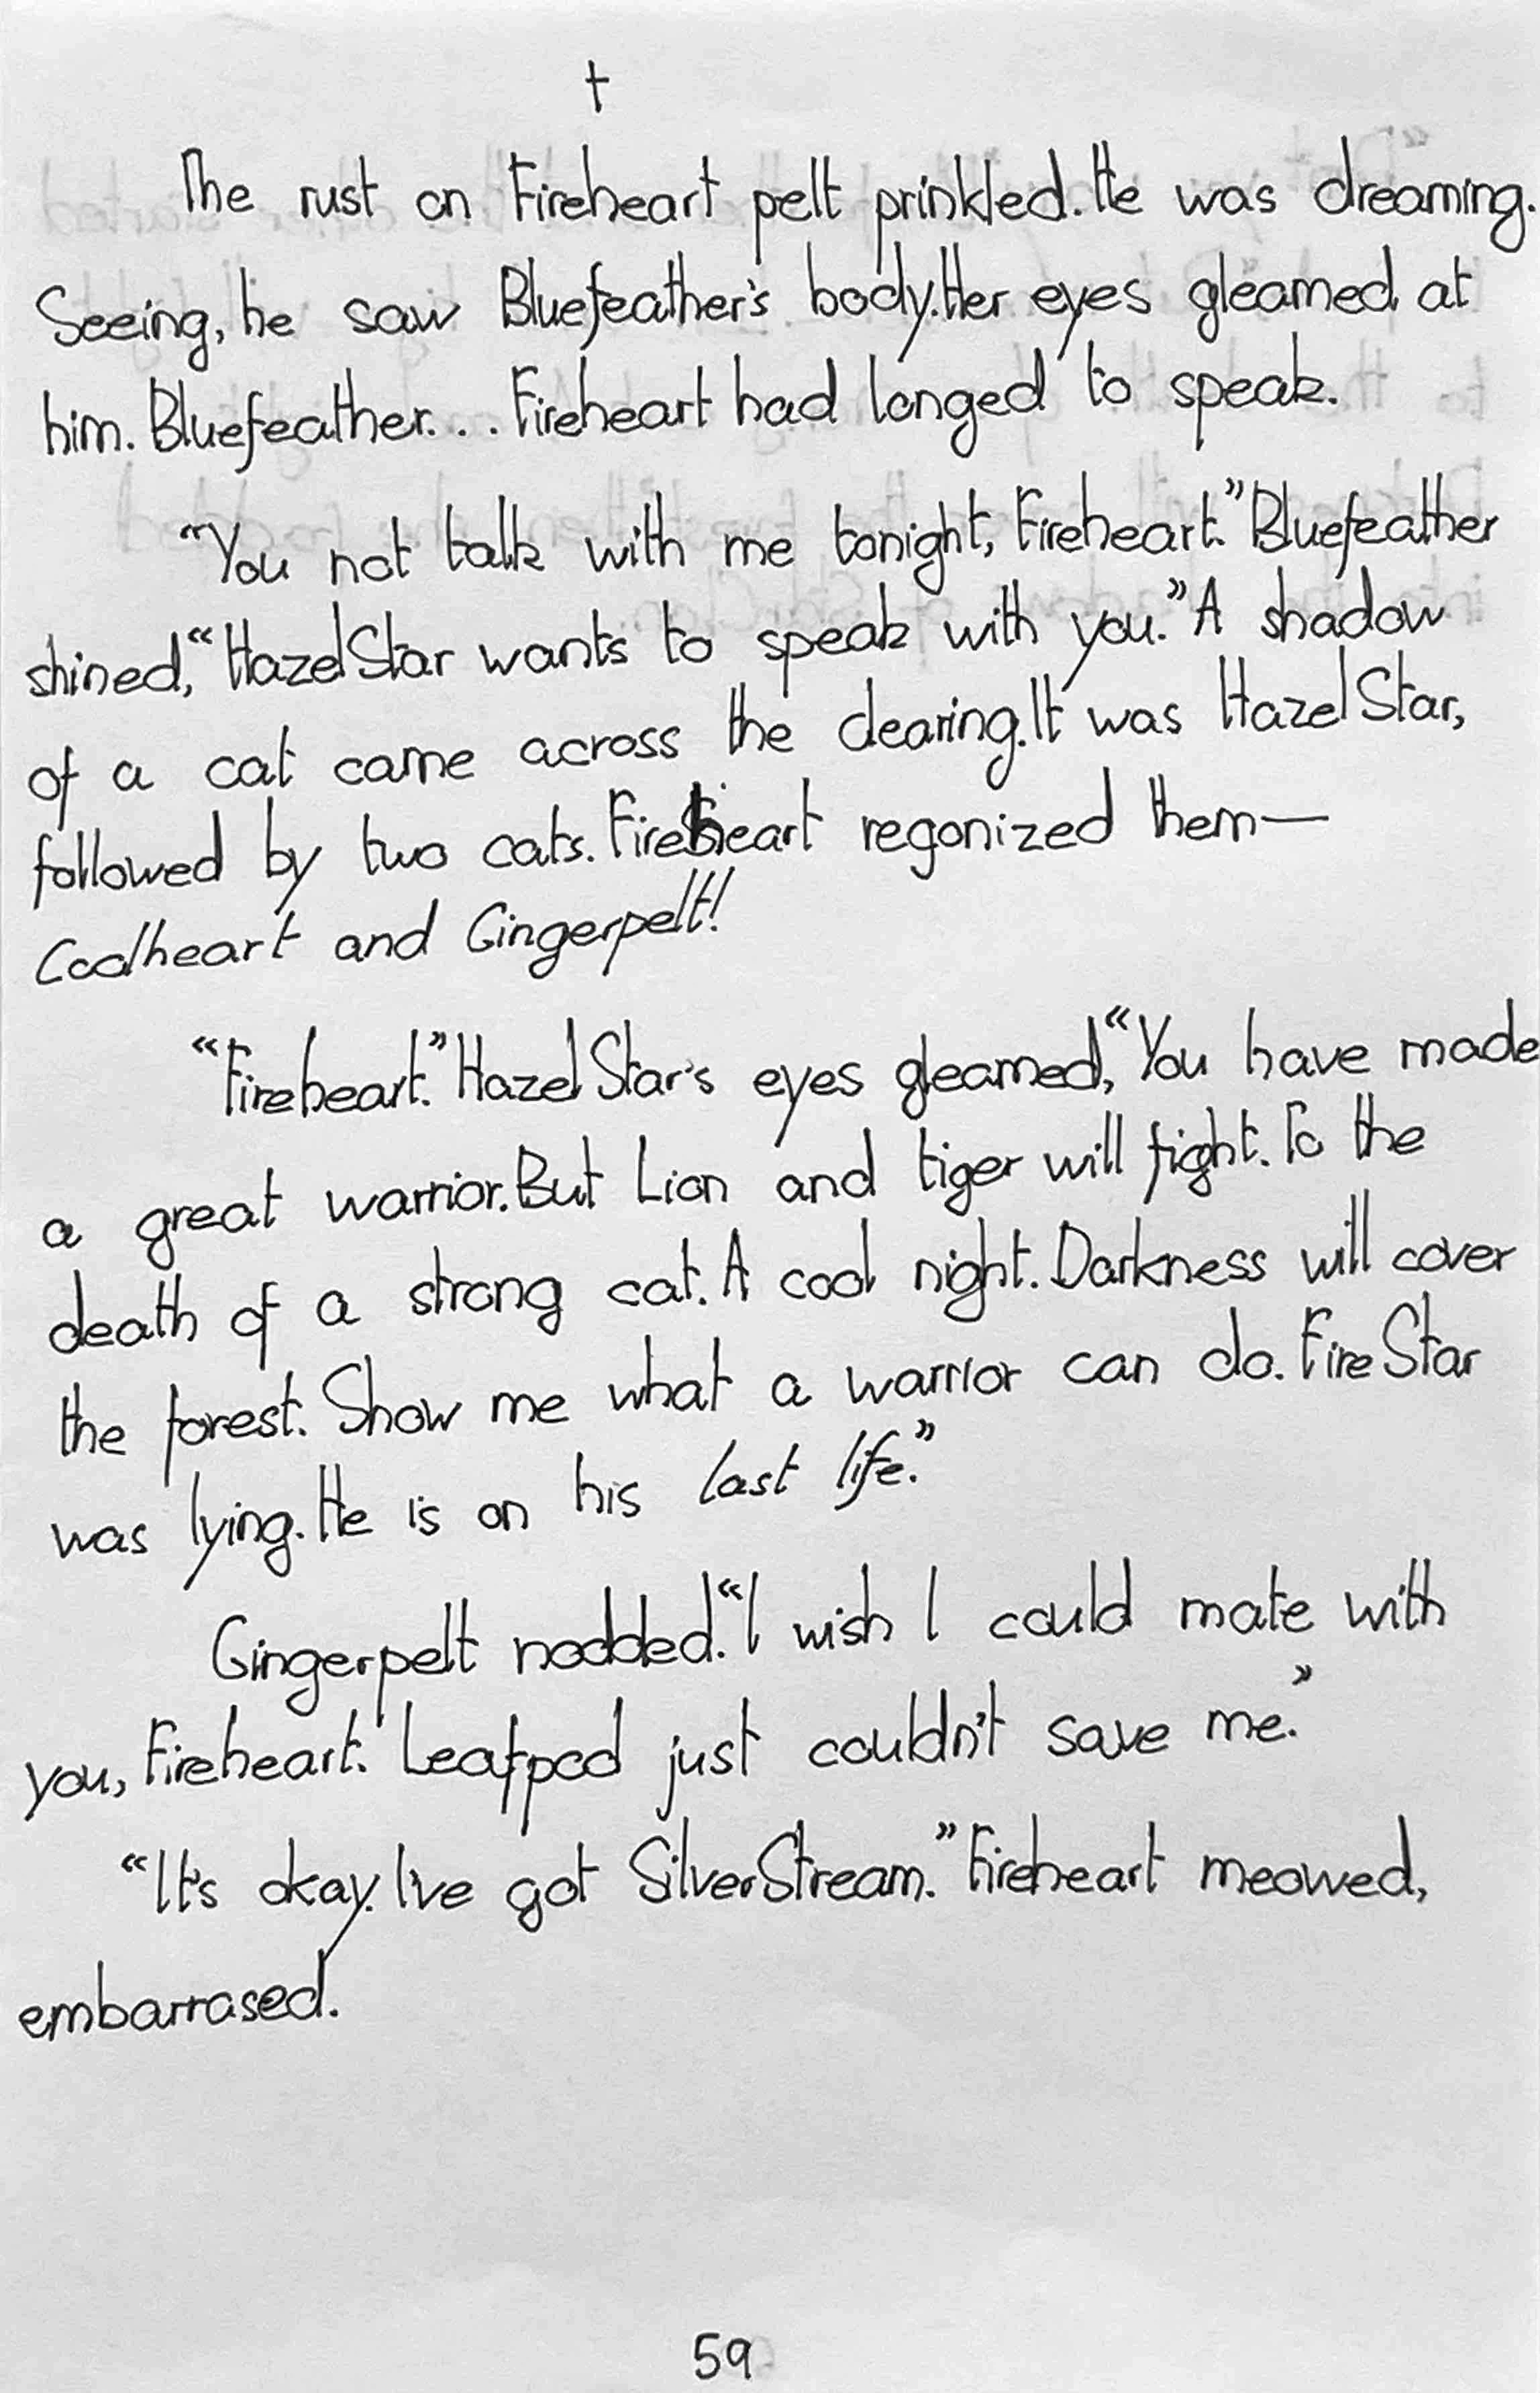 †
The rust on Fireheart pelt prinkled. He was dreaming.
Seeing, he saw Bluefeather's body. Her eyes gleamed at
him. Bluefeather... Fireheart had longed to speak.
"You not talk with me tonight, Fireheart." Bluefeather
shined, "HazelStar wants to speak with you." A shadow
of a cat came across the clearing. It was HazelStar,
followed by two cats. Fireheart regonized them—
Coolheart and Gingerpelt!
"Fireheart." HazelStar's eyes gleamed, "You have made
a great warrior. But Lion and tiger will fight. To the
death of a strong cat. A cool night. Darkness will cover
the forest. Show me what a warrior can do. FireStar
was lying. He is on his last life."
Gingerpelt nodded. "I wish I could mate with
you, Fireheart. Leafpod just couldn't save me."
"It's okay. I've got SilverStream." Fireheart meowed,
embarrased.
59